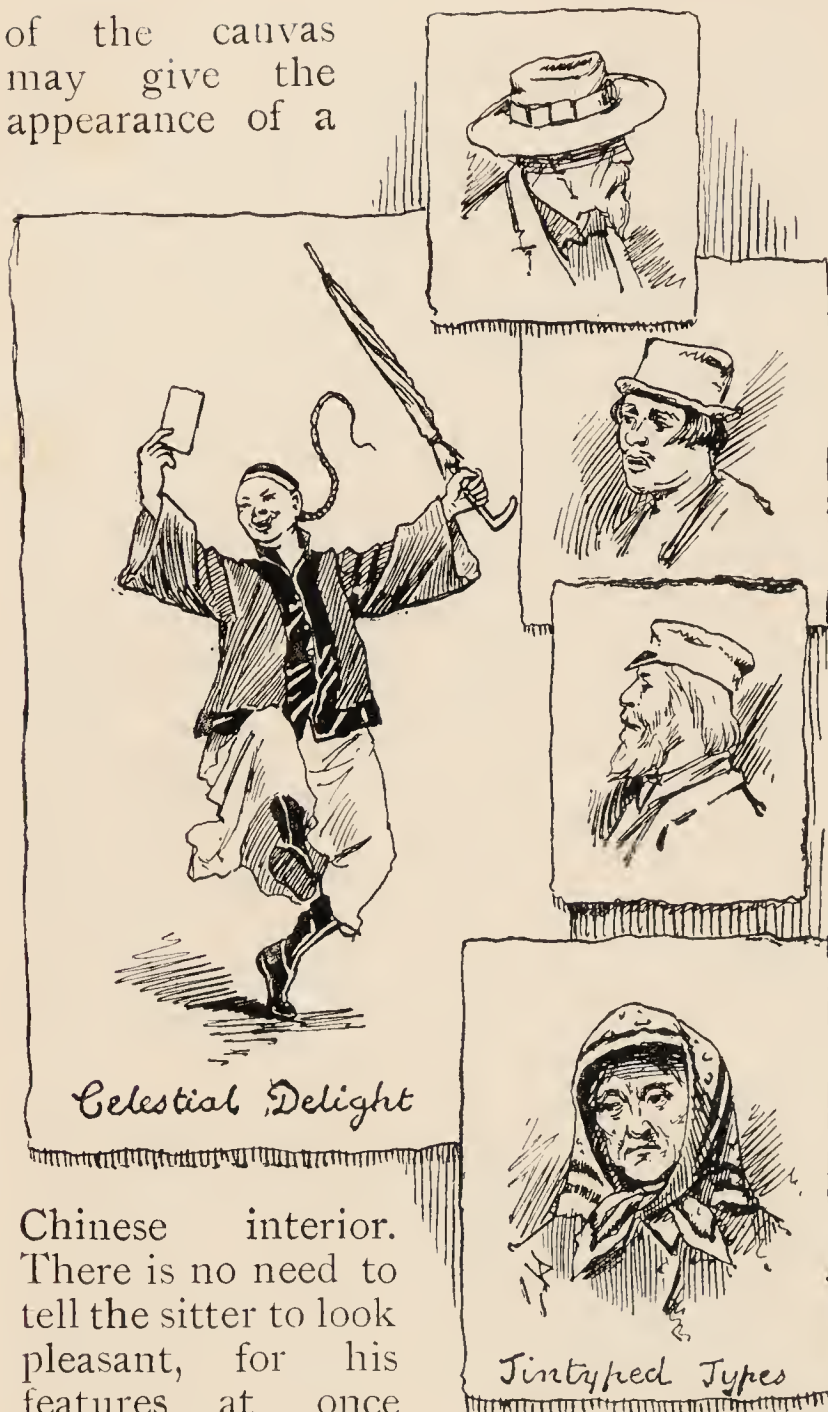 of the canvas
may give the
appearance of a
Celestial Delight
Chinese interior.
There is no need to
tell the sitter to look
pleasant, for his
features at once
Tintyped Types